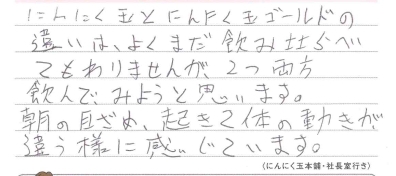 にんにく玉とにんにく玉ゴールドの
違いは、よくまだ飲み比らべ
てもわりませんが、2つ両方
飲んでみようと思います。
朝の目ざめ、起きて体の動きが
違う様に感じています。
(にんにく玉本舗・社長室行き)